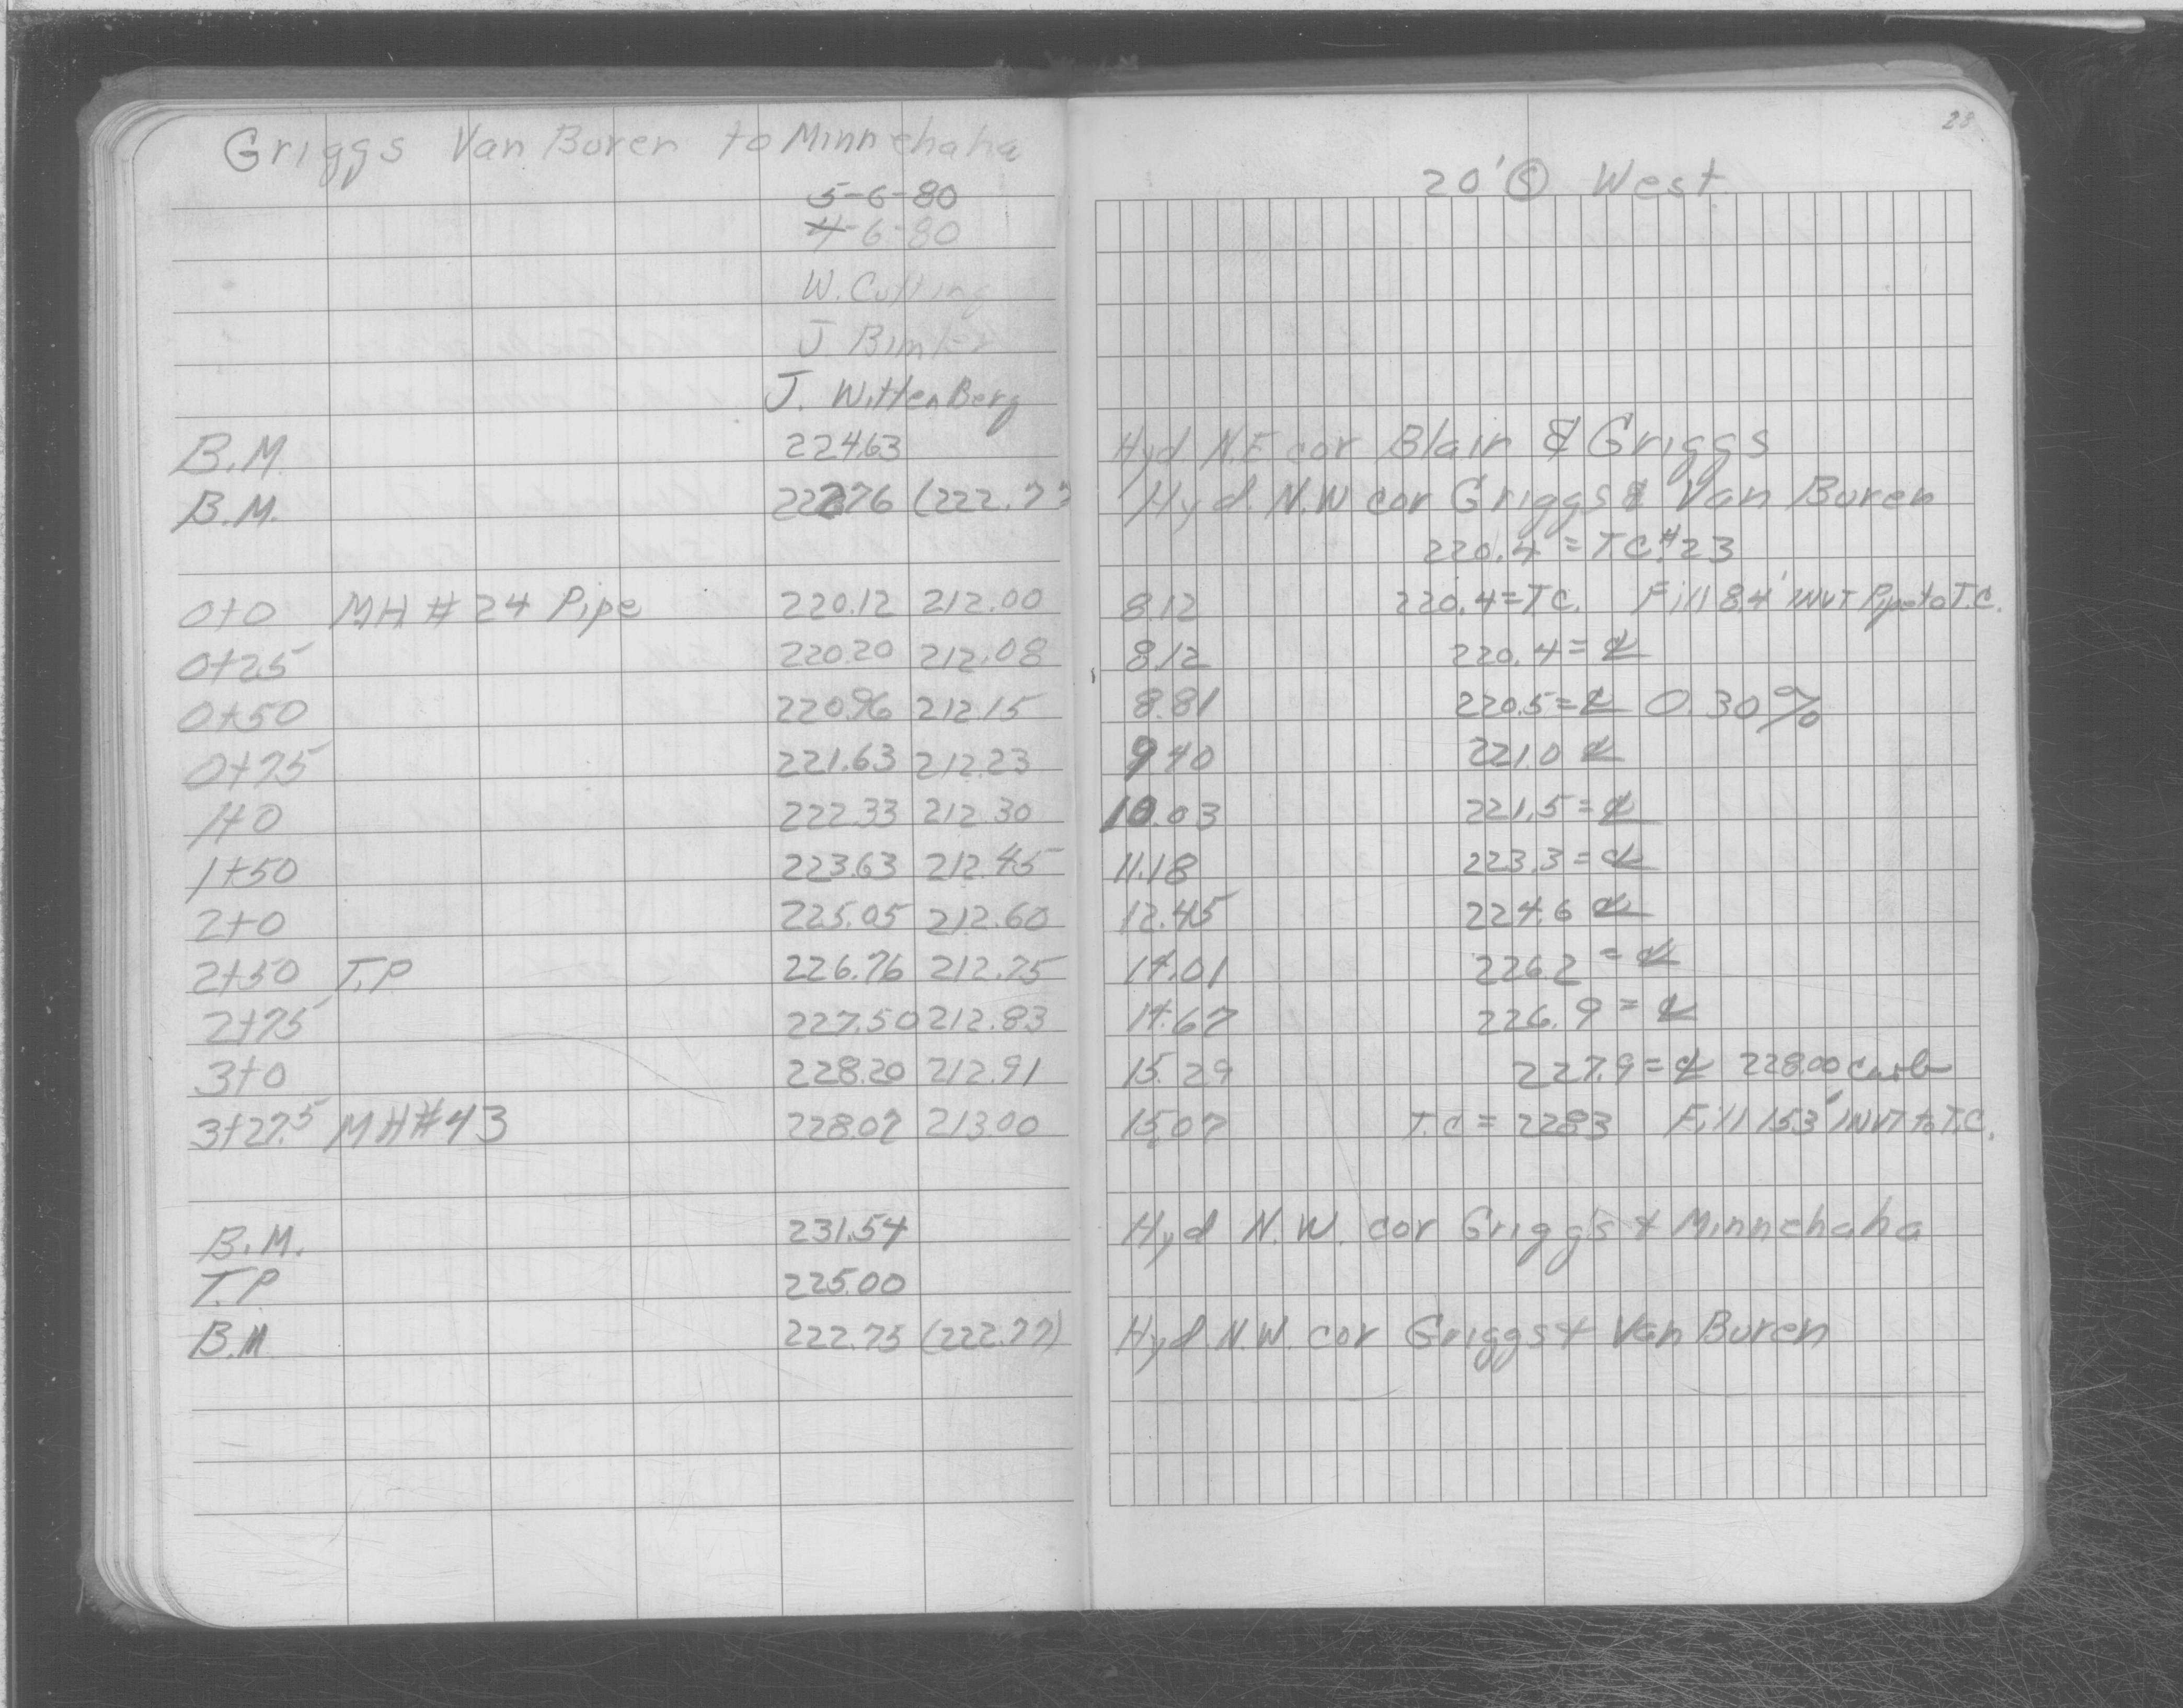 Griggs Van Buren to Minnehaha
5-6-80
4-6-80
W. Cutting
J. Bimler
J. WittenBerg
23
20' Ⓢ West
B.M. 224.63 Hyd. N.E cor Blair & Griggs
B.M. 222.76 (222.77 Hyd. N.W cor Griggs & Van Buren
220.4 = T.C.#23
0+0 MH # 24 Pipe 220.12 212.00 8.12 220.4=TC. Fill 8.4' INVT Pipe to T.C.
0+25 220.20 212.08 8.12 220.4= ℄
0+50 220.96 212.15 8.81 220.5= ℄ 0.30%
0+75 221.63 212.23 9.40 221.0 ℄
1+0 222.33 212.30 10.03 221.5 = ℄
1+50 223.63 212.45 11.18 223.3 = ℄
2+0 225.05 212.60 12.45 224.6 ℄
2+50 T.P 226.76 212.75 14.01 226.2 = ℄
2+75 227.50 212.83 14.67 226.9 = ℄
3+0 228.20 212.91 15.29 227.9 = ℄ 228.00 curb
3+27.5 MH#43 228.07 213.00 15.07 T.C = 228.3 Fill 15.3' INVT to T.C.
B.M. 231.54 Hyd N.W. cor Griggs & Minnehaha
T.P 225.00
B.M 222.75 (222.77) Hyd. N.W. cor Griggs & Van Buren